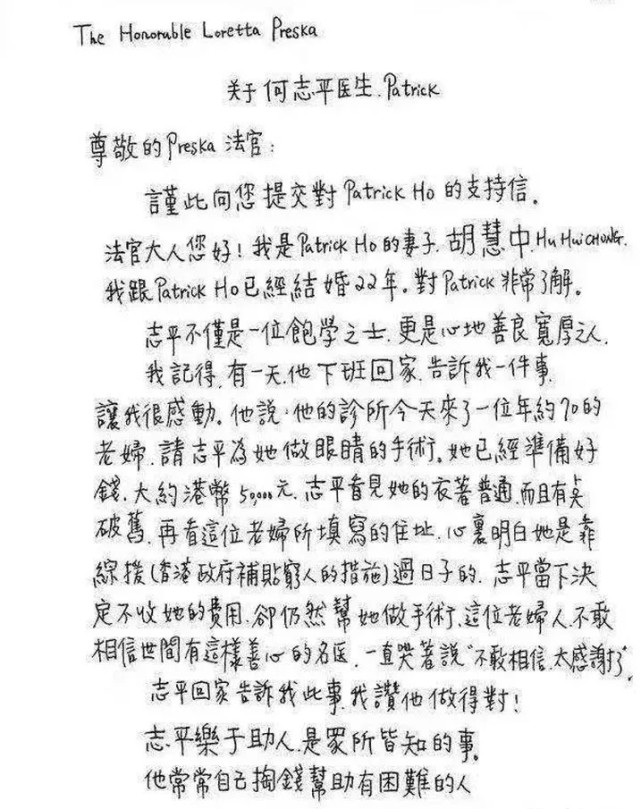 The Honorable Loretta Preska
关于何志平医生.Patrick
尊敬的Preska 法官：
謹此向您提交對Patrick Ho的支持信。
法官大人您好！我是Patrick Ho的妻子.胡慧中.Hu HuiCHONG.
我跟Patrick Ho已經結婚22年。對Patrick非常了解。
志平不僅是一位飽學之士.更是心地善良寬厚之人.
我記得.有一天.他下班回家.告訴我一件事
讓我很感動。他説.他的診所今天來了一位年約70的
老婦.請志平為她做眼睛的手術。她已經準備好
錢.大約港幣50,000元.志平看見她的衣著普通.而且有点
破舊.再看這位老婦所填寫的住址.心裏明白她是靠
綜援(香港政府補貼窮人的措施)過日子的.志平當下決
定不收她的費用.卻仍然幫她做手術.這位老婦人.不敢
相信世間有這樣善心的名医.一直哭著説"不敢相信.太感謝了"
志平回家告訴我此事.我讚他做得對！
志平樂于助人.是眾所皆知的事。
他常常自己掏錢幫助有困難的人